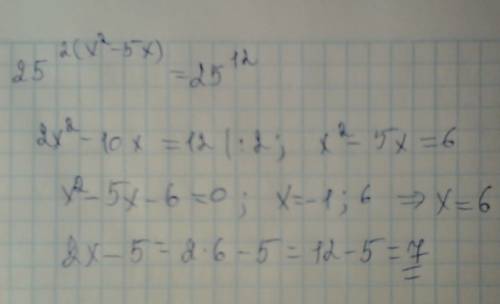 25^{2(x²-5x)} = 25^{12}
2x² - 10x = 12 | : 2 ; x² - 5x = 6
x² - 5x - 6 = 0 ; x = -1 ; 6 ⇒ x = 6
2x - 5 = 2·6 - 5 = 12 - 5 = 7